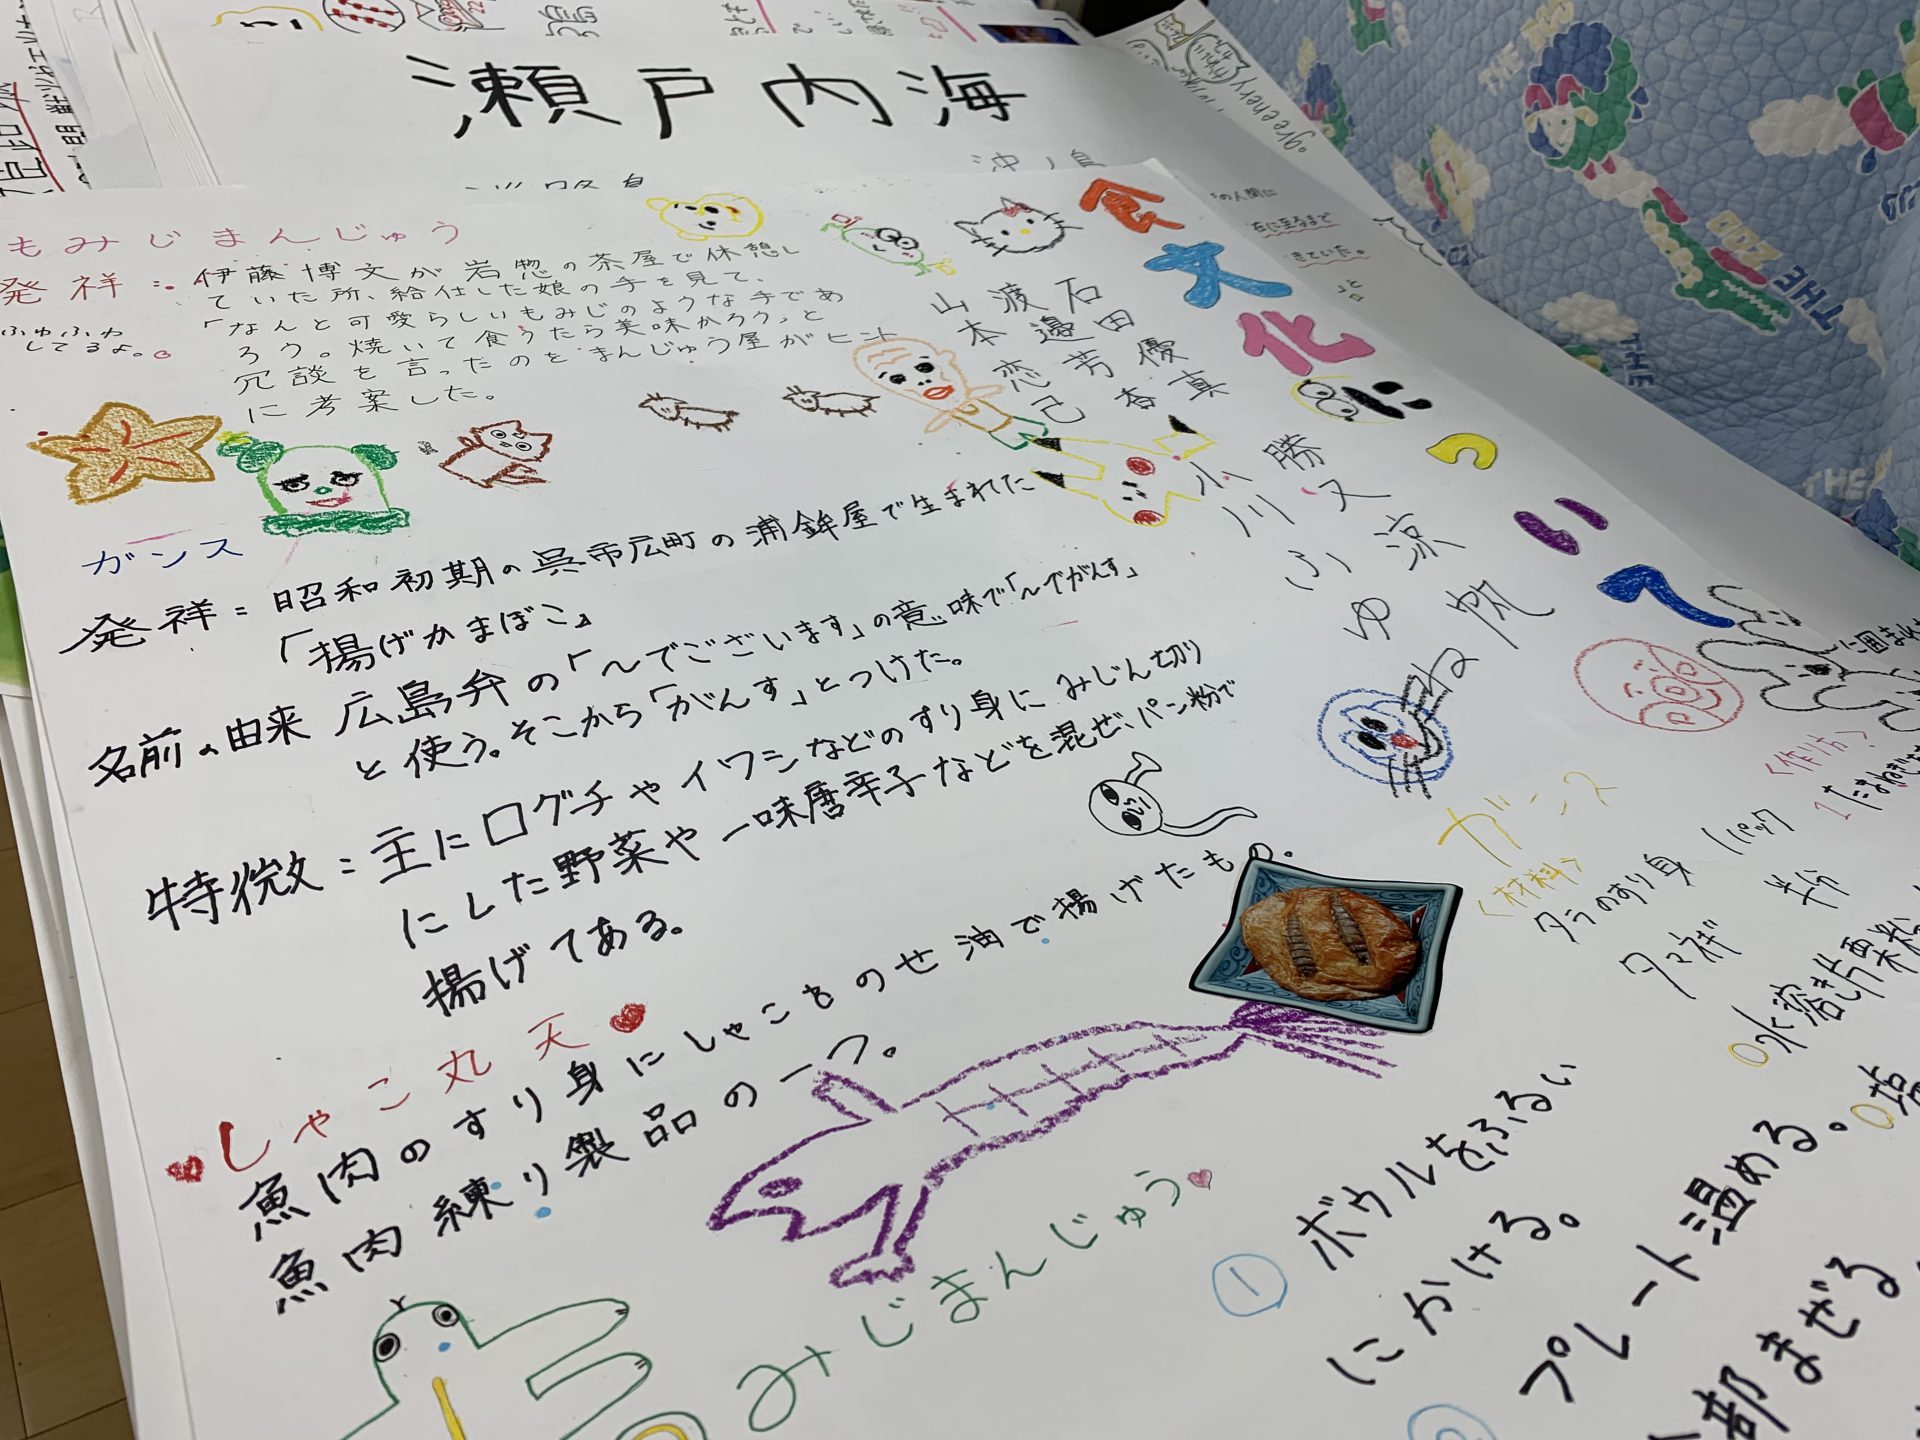 瀬戸内海
食文化について
石田優真
渡邉芳春
山本恋己
勝又涼帆
小川ふゆね
もみじまんじゅう
発祥：伊藤博文が岩惣の茶屋で休憩し
ていた所、給仕した娘の手を見て、
「なんと可愛らしいもみじのような手であ
ろう。焼いて食うたら美味かろう」と
冗談を言ったのをまんじゅう屋がヒント
に考案した。
ふゅふゅ
してるよ。
ガンス
発祥：昭和初期の呉市広町の浦鉾屋で生まれた
「揚げかまぼこ」
名前の由来 広島弁の「〜でございます」の意味で「〜でがんす」
と使う。そこから「がんす」とつけた。
特徴：主に口グチやイワシなどのすり身にみじん切り
にした野菜や一味唐辛子などを混ぜ、パン粉で
揚げてある。
しゃこ丸天
魚肉のすり身にしゃこをのせ油で揚げたもの。
魚肉練り製品の一つ。
ガンス
<材料>
タラのすり身 1パック
タマネギ 半分
水溶き片栗粉
<作り方>
1 たまねぎ
みじまんじゅう
① ボウルをふるい
にかける。
プレート温める。
部まぜる
greenery
THE ZOO